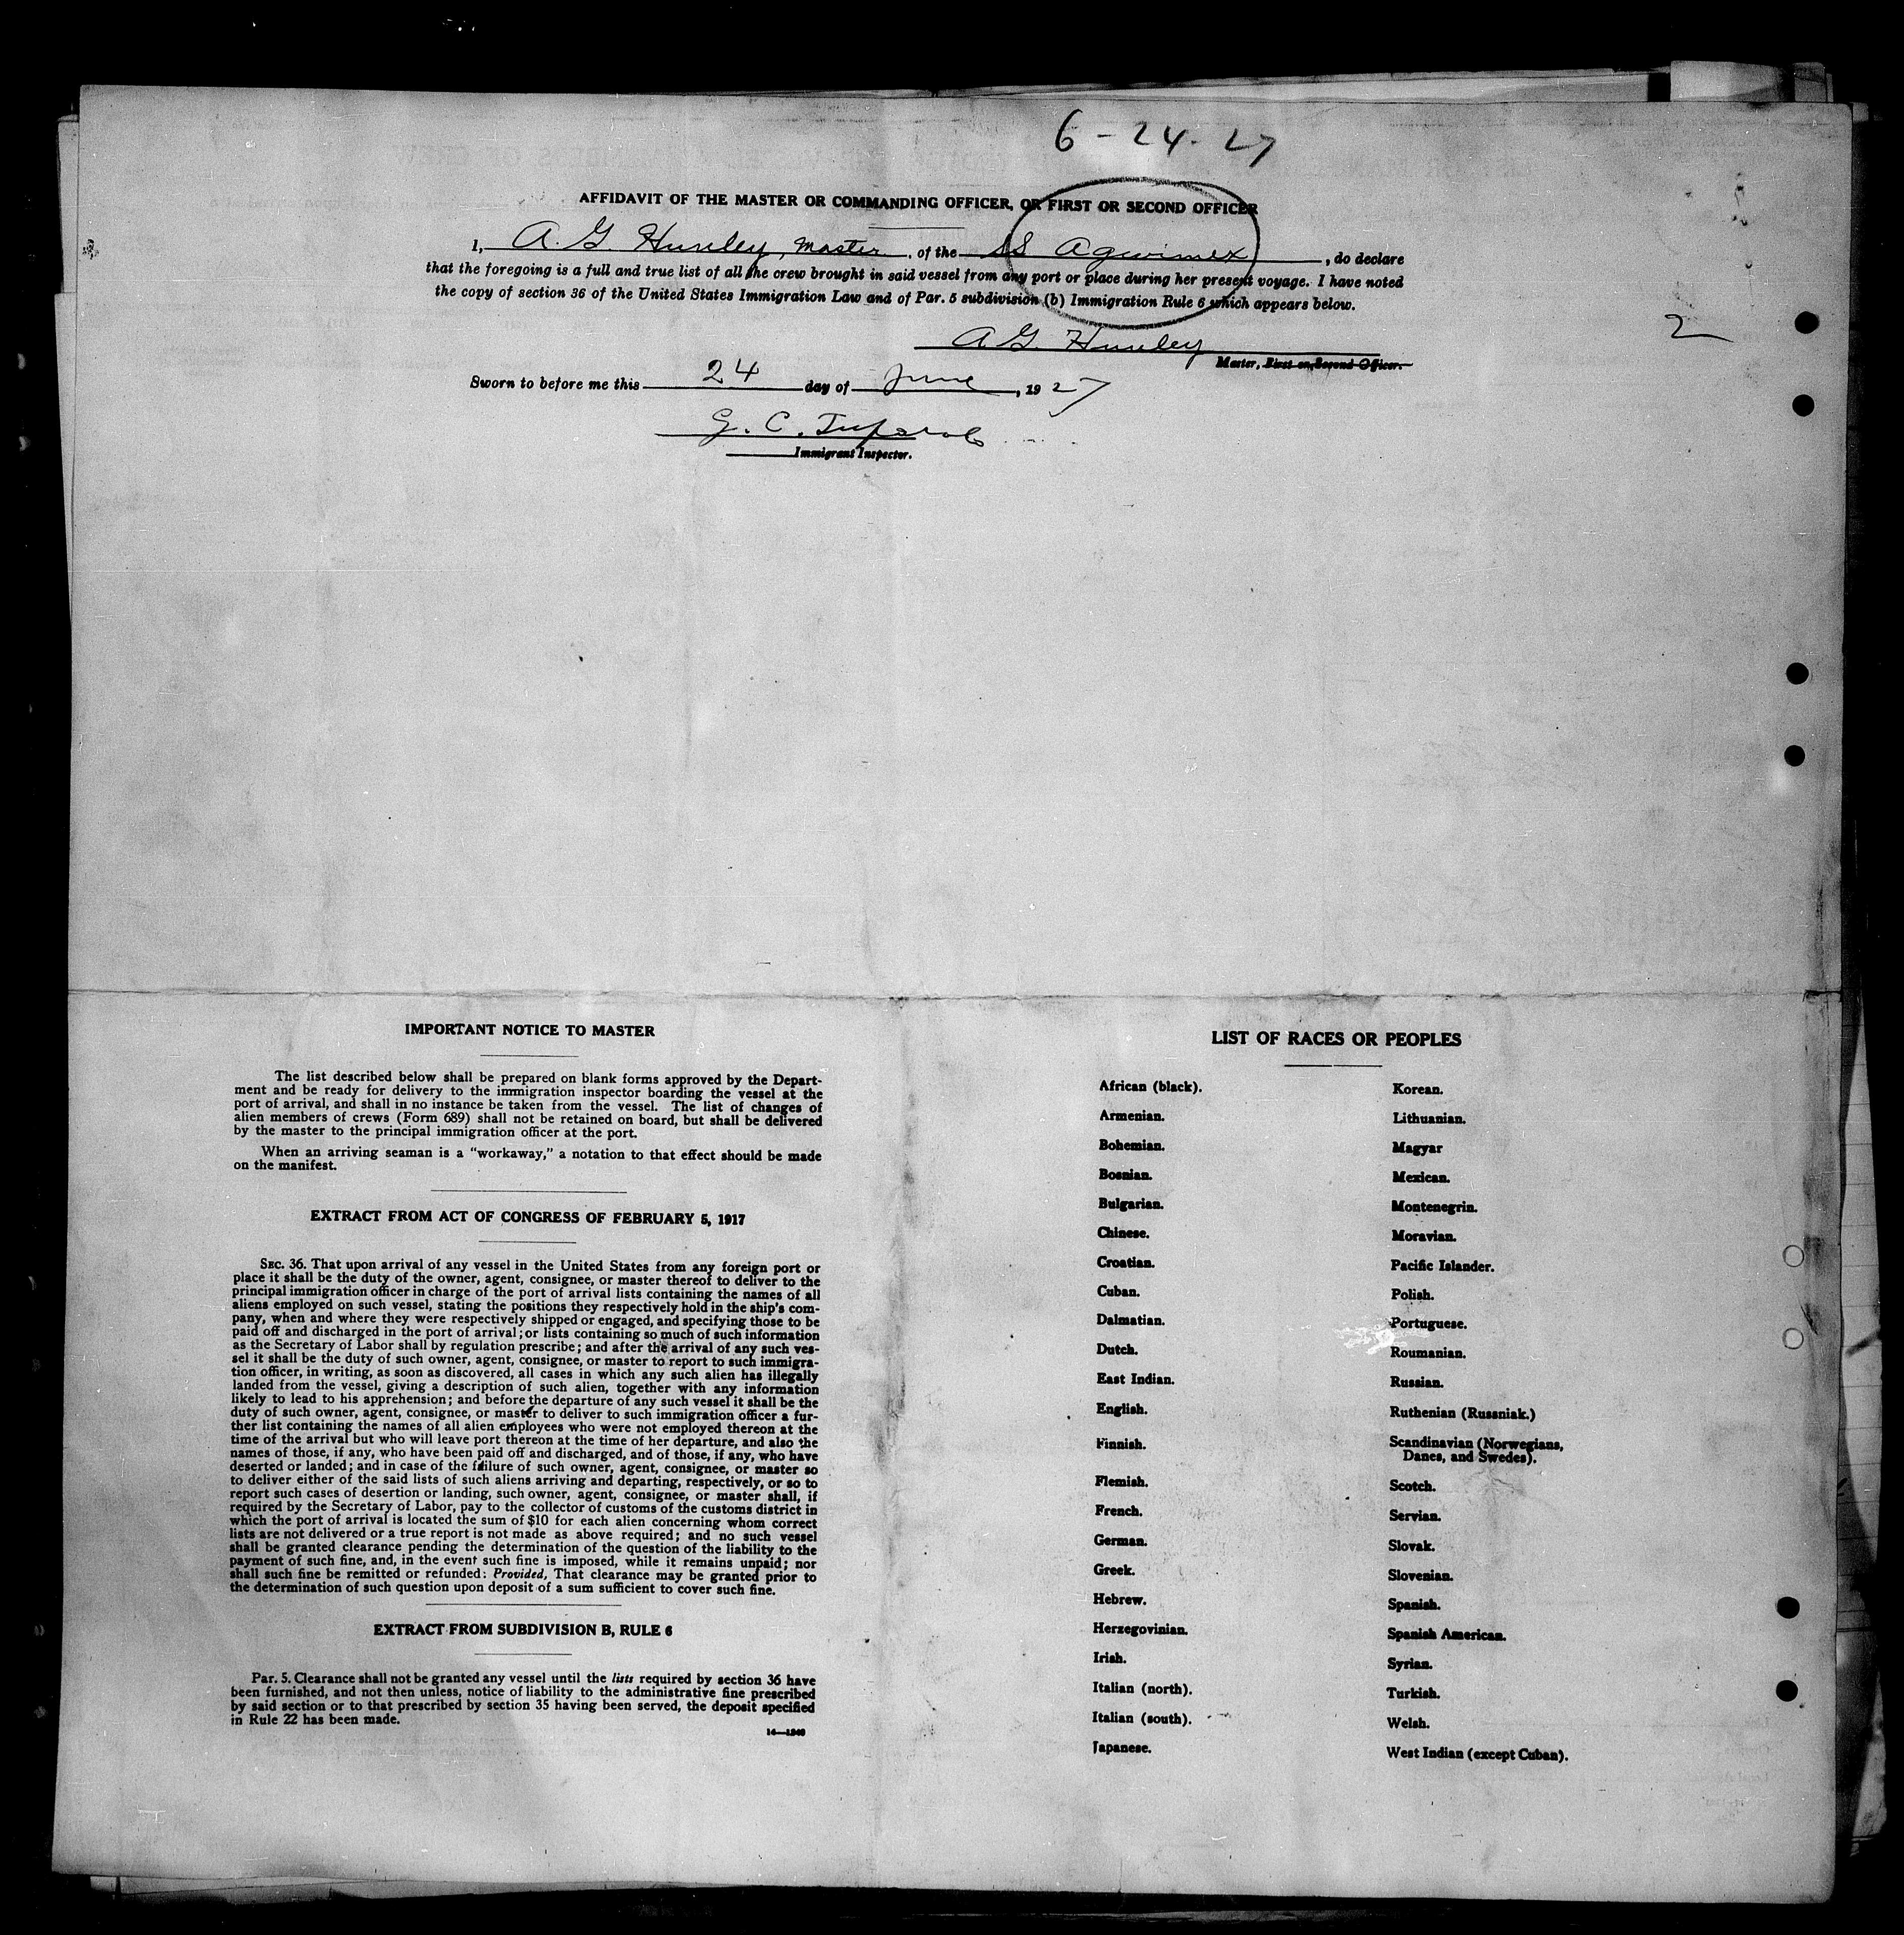 6-24-27
AFFIDAVIT OF THE MASTER OR COMMANDING OFFICER, OR FIRST OR SECOND OFFICER
I, A. G. Hunley, Master, of the SS Agwimex, do declare
that the foregoing is a full and true list of all the crew brought in said vessel from any port or place during her present voyage. I have noted
the copy of section 36 of the United States Immigration Law and of Par. 5 subdivision (b) Immigration Rule 6 which appears below.
2
A G. Hunley
Master, First or Second Officer.
Sworn to before me this 24 day of June, 1927
G. C.
Immigrant Inspector.
IMPORTANT NOTICE TO MASTER
The list described below shall be prepared on blank forms approved by the Depart-
ment and be ready for delivery to the immigration inspector boarding the vessel at the
port of arrival, and shall in no instance be taken from the vessel. The list of changes of
alien members of crews (Form 689) shall not be retained on board, but shall be delivered
by the master to the principal immigration officer at the port.
When an arriving seaman is a "workaway," a notation to that effect should be made
on the manifest.
EXTRACT FROM ACT OF CONGRESS OF FEBRUARY 5, 1917
SEC. 36. That upon arrival of any vessel in the United States from any foreign port or
place it shall be the duty of the owner, agent, consignee, or master thereof to deliver to the
principal immigration officer in charge of the port of arrival lists containing the names of all
aliens employed on such vessel, stating the positions they respectively hold in the ship's com-
pany, when and where they were respectively shipped or engaged, and specifying those to be
paid off and discharged in the port of arrival; or lists containing so much of such information
as the Secretary of Labor shall by regulation prescribe; and after the arrival of any such ves-
sel it shall be the duty of such owner, agent, consignee, or master to report to such immigra-
tion officer, in writing, as soon as discovered, all cases in which any such alien has illegally
landed from the vessel, giving a description of such alien, together with any information
likely to lead to his apprehension; and before the departure of any such vessel it shall be the
duty of such owner, agent, consignee, or master to deliver to such immigration officer a fur-
ther list containing the names of all alien employees who were not employed thereon at the
time of the arrival but who will leave port thereon at the time of her departure, and also the
names of those, if any, who have been paid off and discharged, and of those, if any, who have
deserted or landed; and in case of the failure of such owner, agent, consignee, or master so
to deliver either of the said lists of such aliens arriving and departing, respectively, or so to
report such cases of desertion or landing, such owner, agent, consignee, or master shall, if
required by the Secretary of Labor, pay to the collector of customs of the customs district in
which the port of arrival is located the sum of $10 for each alien concerning whom correct
lists are not delivered or a true report is not made as above required; and no such vessel
shall be granted clearance pending the determination of the question of the liability to the
payment of such fine, and, in the event such fine is imposed, while it remains unpaid; nor
shall such fine be remitted or refunded: Provided, That clearance may be granted prior to
the determination of such question upon deposit of a sum sufficient to cover such fine.
EXTRACT FROM SUBDIVISION B, RULE 6
Par. 5. Clearance shall not be granted any vessel until the lists required by section 36 have
been furnished, and not then unless, notice of liability to the administrative fine prescribed
by said section or to that prescribed by section 35 having been served, the deposit specified
in Rule 22 has been made.
LIST OF RACES OR PEOPLES
African (black).
Armenian.
Bohemian.
Bosnian.
Bulgarian.
Chinese.
Croatian.
Cuban.
Dalmatian.
Dutch.
East Indian.
English.
Finnish.
Flemish.
French.
German.
Greek.
Hebrew.
Herzegovinian.
Irish.
Italian (north).
Italian (south).
Japanese.
Korean.
Lithuanian.
Magyar
Mexican.
Montenegrin.
Moravian.
Pacific Islander.
Polish.
Portuguese.
Roumanian.
Russian.
Ruthenian (Russniak.)
Scandinavian (Norwegians,
Danes, and Swedes).
Scotch.
Servian.
Slovak.
Slovenian.
Spanish.
Spanish American.
Syrian.
Turkish.
Welsh.
West Indian (except Cuban).